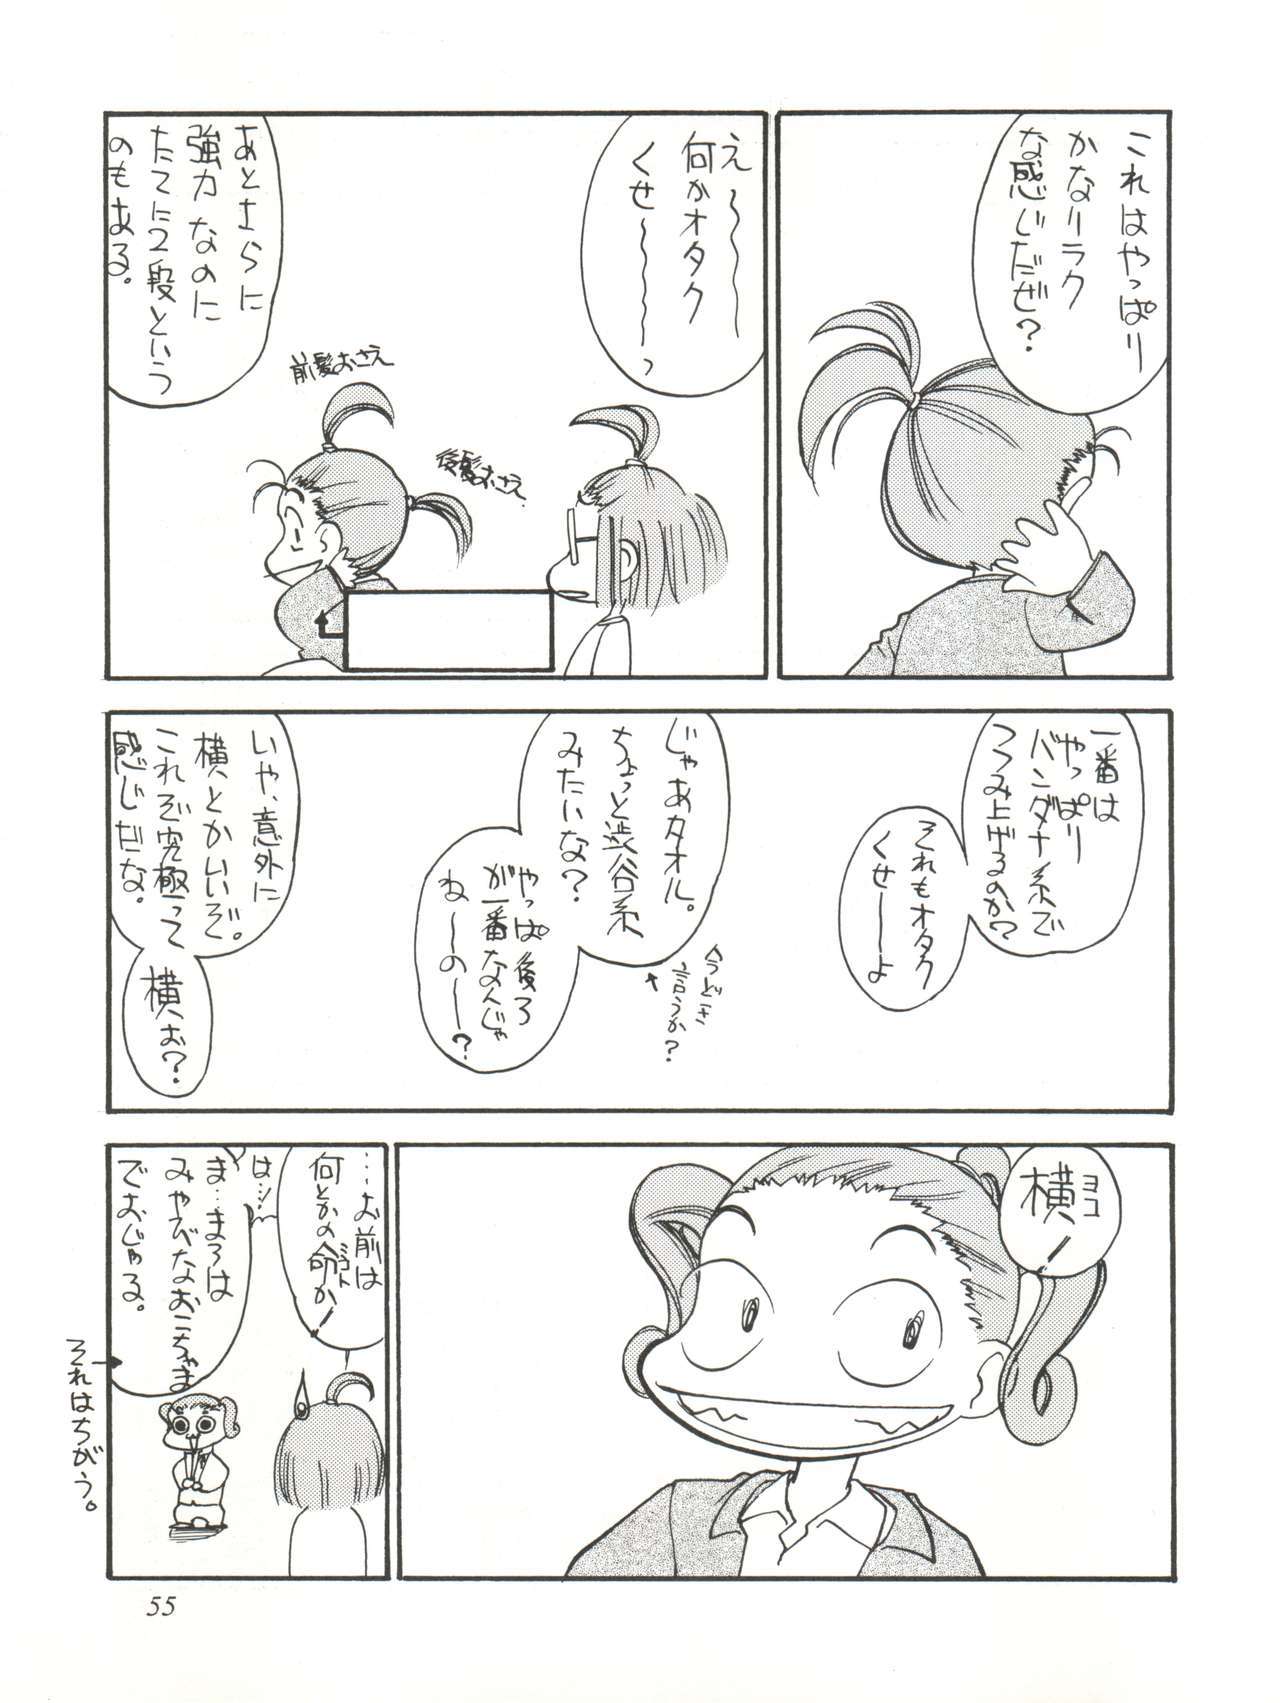 これはやっぱり
かなりラク
な感じだぜ?
え〜〜〜
何かオタク
くせ〜〜〜っ
あとさらに
強力なのに
たてに2段という
のもある。
前髪おさえ
後髪おさえ
一番は
やっぱり
バンダナ系で
つつみ上げるのか?
それもオタク
くせーーよ
じゃあタオル。
ちょっと渋谷系
みたいな?
今どき
言うか?
やっぱ後ろ
が一番なんじゃ
ねーのー?
いや、意外に
横とかいいぞ。
これぞ究極って
感じだな。
横ぉ?
横
ヨコ
…お前は
何とかの命か
ミコト
は…!
ま…まろは
みやびなおこちゃま
でおじゃる。
それはちがう。
55